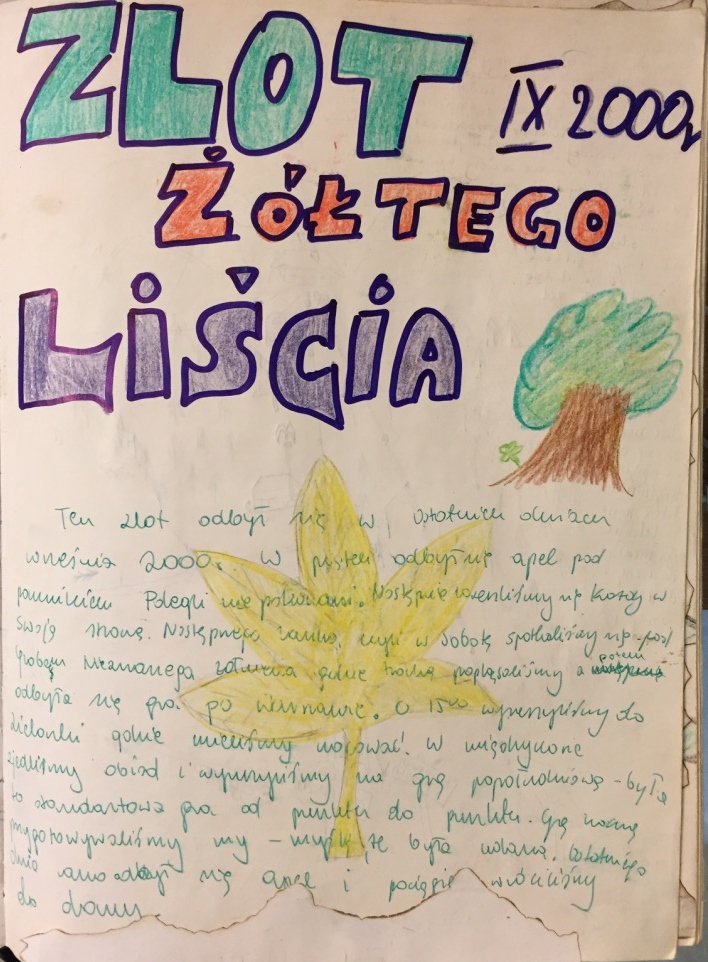 ZLOT
IX 2000r
ŻÓŁTEGO
LIŚCIA
Ten zlot odbył się w ostatnich dniach
września 2000r. W piątek odbył się apel pod
pomnikiem Polegli nie pokonani. Następnie rozeszliśmy się każdy w
swoją stronę. Następnego ranka, czyli w sobotę spotkaliśmy się pod
Grobem Nieznanego żołnierza gdzie trochę popląsaliśmy a potem
odbyła się gra po Warszawie. O 15⁰⁰ wyruszyliśmy do
Zielonki gdzie mieliśmy nocować. W międzyczasie
zjedliśmy obiad i wyruszyliśmy na grę popołudniową - była
to standartowa gra od punktu do punktu. Grę nocną
przygotowywaliśmy my - myślę, że była udana. Ostatniego
dnia rano odbył się apel i pociągiem wróciliśmy
do domu.